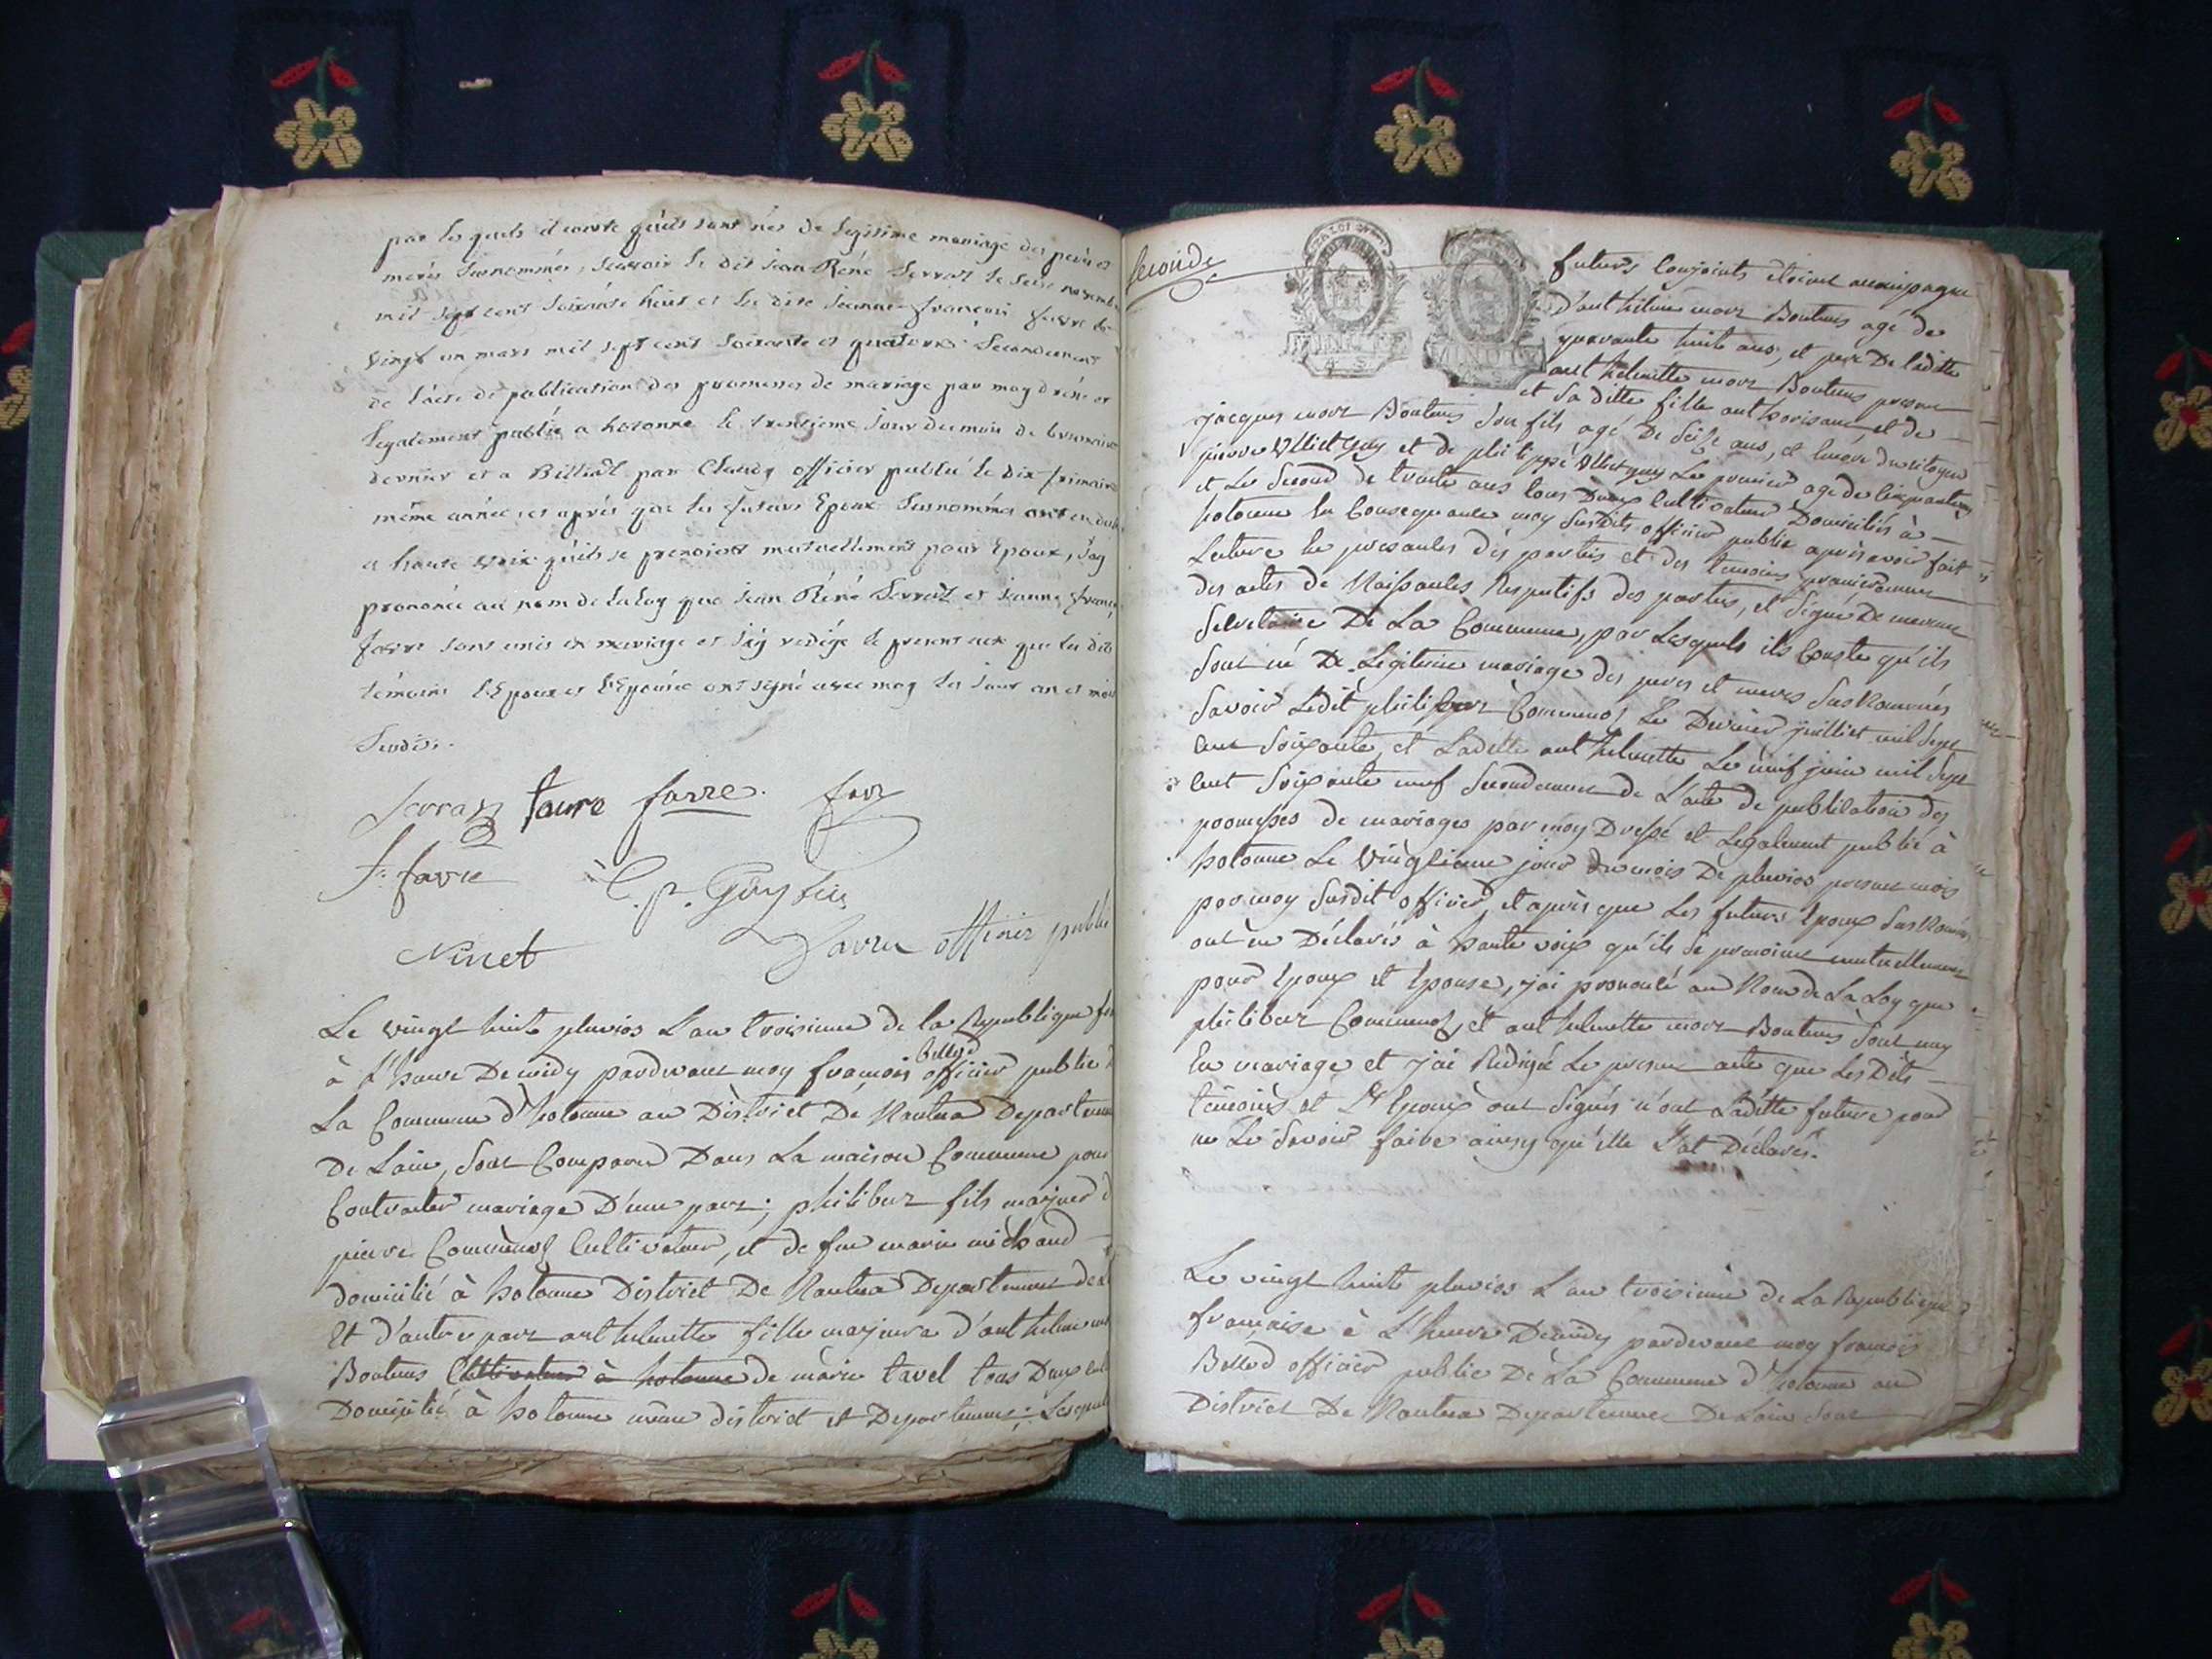 par lesquels il conste qu'ils sont nés de legitime mariage des peres et
meres surnommés, scavoir le dit jean Réné Serraz le seize novemb
mil sept cent soixante huit et la dite jeanne françoise favre le
vingt un mars mil sept cent soixante et quatorze. Secondement
de l'acte de publication des promesses de mariage par moy dréssé et
legalement publié a hotonne le trentieme jour du mois de brumaire
dernier et a Billiat par Claudy officier publié le dix frimaire
même année, et aprés que les futurs Epoux surnommés ont eu
a haute voix qu'ils se prenoient mutuellement pour Epoux, j'ay
prononcé au nom de la Loy que jean Réné Serraz et jeanne françoi
favre sont unis en mariage et j'ay redigé le present acte que les dits
témoins l'Epoux et l'Epouse ont signé avec moy les jour an et mois
Susdits.
Serraz favre favre.
f. favre C. p. Guy
Ninet favre officier public
Le vingt huit pluvios L'an troisieme de la Republique
à L'heure De midy pardevant moy francois Belled officier public
La Commune d'hotonne au District De Nantua Departeme
De Lain, sont Comparu Dans La maison Commune pour
Contracter mariage D'une part; philibert fils majeur
pierre Commenoz Cultivateur, et de feu marie michaud
domicilié à hotonne District De Nantua Departement de
Et d'autre part anthelmette fille majeure d'anthelme
Boutens Cultivateur à hotonne de marie tavel tous Deux
Domicilié à hotonne même district et Departement; Lesquels
Seconde
MINUTE
4 S
MINUTE
futurs Conjoints etoient accompagné
D'anthelme Boutens agé de
quarante huit ans, et pere De ladite
anthelmette Boutens present
et Sa ditte fille authorisant et de
jacques Boutens son fils agé De Seize ans, et encore du citoyen
pierre et de philippe Le premier agé de cinquante
et Le Second de trente ans tous Deux Cultivateur Domiciliés à
hotonne En Consequance moy Susdit officier public après avoir fait
Lecture En presances des parties et des temoins premierement
des actes de Naissances Respectifs des parties, et Signé De
Secretaire De La Commune, par Lesquels ils Conste qu'ils
Sont né De Legitime mariage des peres et meres Susnommés
Savoir Ledit philibert Commenoz Le Dernier juillet mil Sept
cent Soixante, et Ladette anthelmette Le neuf juin mil Sept
cent Soixante neuf Secondement de L'acte de publication des
promesses de mariages par moy Dressé et Legalement publié à
hotonne Le Vingtieme jour du mois De pluvios present mois
par moy Susdit officier, et après que Les futurs Epoux Susnommés
ont eu Déclarés à haute voix qu'ils Se prenoient mutuellement
pour Epoux et Epouse, j'ai prononcé au Nom de La Loy que
philibert Commenoz, et anthelmette Boutens Sont uny
En mariage et j'ai Redigé Le present acte que Les Dits
temoins et L'Epoux ont Signés n'ont Ladette future pour
ne Le Savoir faire ainsy qu'elle L'at Déclarés.
Le vingt huit pluvios L'an troisieme de La Republique
françaisse à L'heure De midy pardevant moy francois
Belled officier public De La Commune d'hotonne au
District De Nantua Departement De Lain Sont